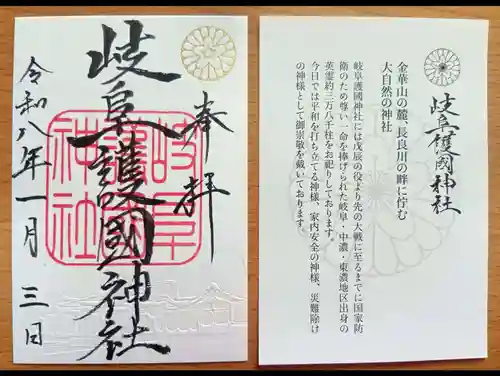 奉拝
岐阜護國神社
岐阜護國神社
令和八年一月三日
岐阜護國神社
金華山の麓、長良川の畔に佇む
大自然の神社
岐阜護國神社には戊辰の役より先の大戦に至るまでに国家防
衛のため尊い一命を捧げられた岐阜・中濃・東濃地区出身の
英霊約三万八千柱をお祀りしております。
今日では平和を打ち立てる神様、家内安全の神様、災難除け
の神様として御崇敬を戴いております。